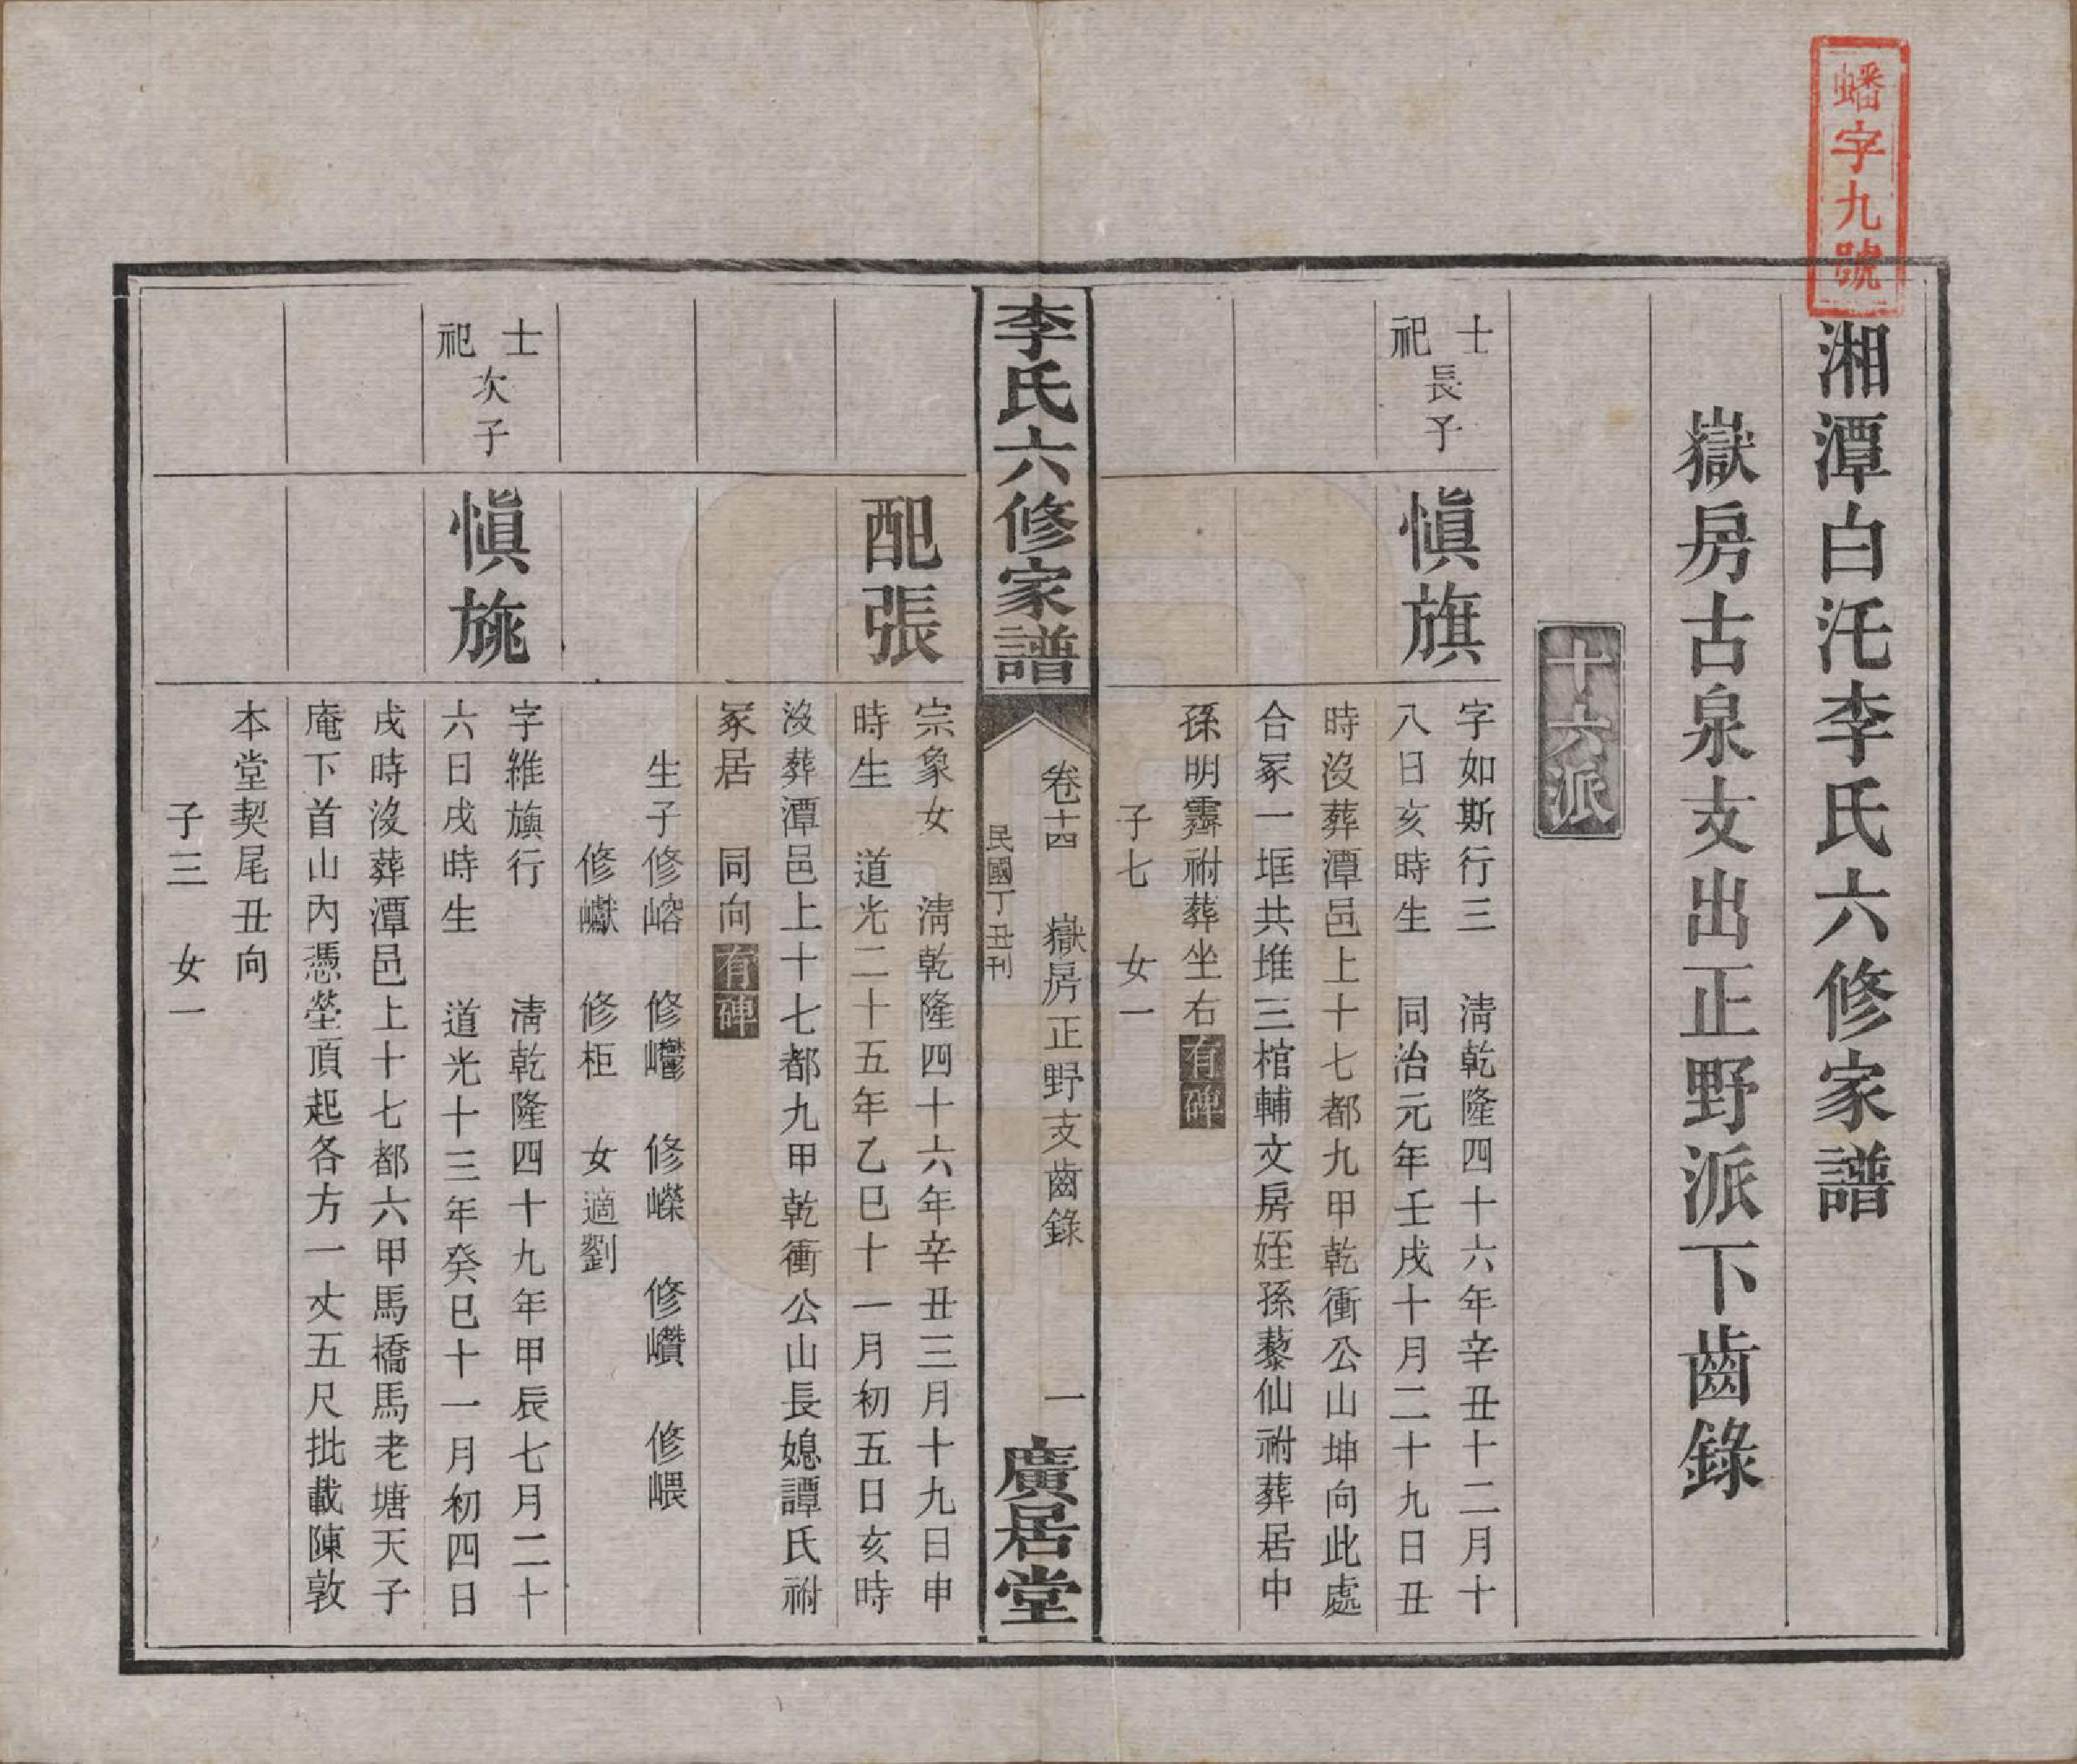 蟠字九號
湘潭白汑李氏六修家譜
嶽房古泉支出正野派下齒錄
十六派
士祀長子
愼旗
字如斯行三　淸乾隆四十六年辛丑十二月十
八日亥時生　同治元年壬戌十月二十九日丑
時沒葬潭邑上十七都九甲乾衝公山坤向此處
合冢一框共堆三棺輔文房姪孫藜仙祔葬居中
孫明霽祔葬坐右有碑
子七　女一
李氏六修家譜
卷十四　嶽房正野支齒錄　一
民國丁丑刊
廣居堂
配張
宗象女　淸乾隆四十六年辛丑三月十九日申
時生　道光二十五年乙巳十一月初五日亥時
沒葬潭邑上十七都九甲乾衝公山長媳譚氏祔
冢居　同向有碑
生子修嵱　修　修嶸　修巑　修崼
修巘　修柜　女適劉
士祀次子
愼旐
字維旟行　淸乾隆四十九年甲辰七月二十
六日戌時生　道光十三年癸巳十一月初四日
戌時沒葬潭邑上十七都六甲馬橋馬老塘天子
庵下首山內憑塋頂起各方一丈五尺批載陳敦
本堂契尾丑向
子三　女一